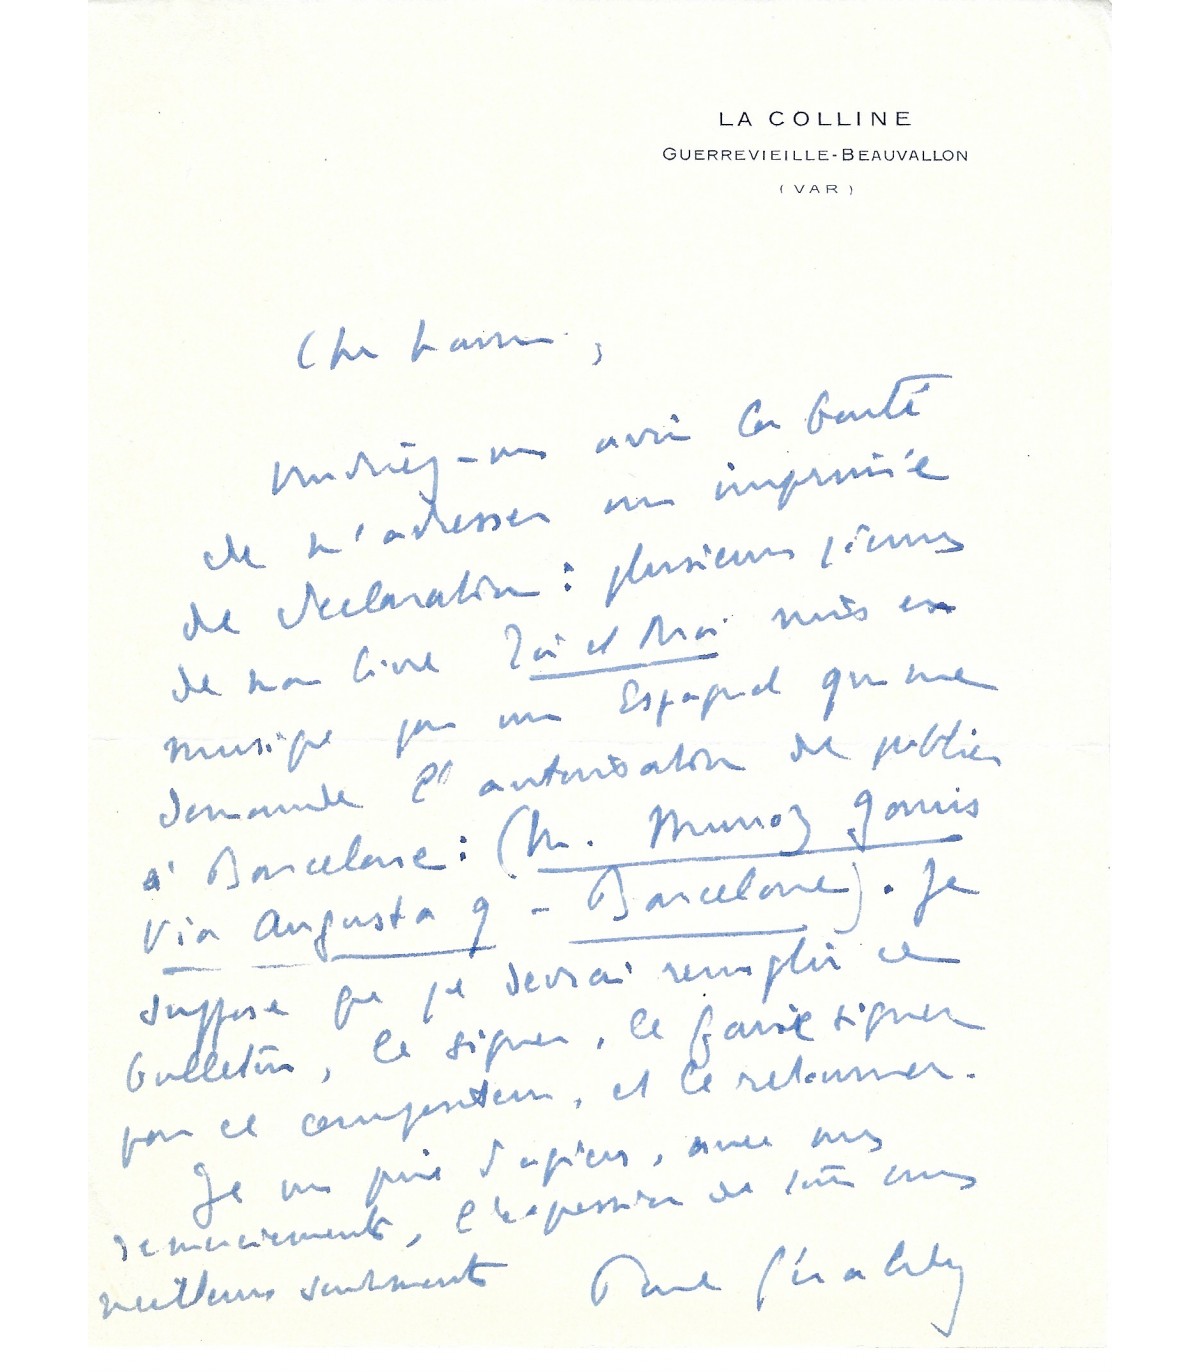 LA COLLINE
GUERREVIEILLE-BEAUVALLON
(VAR)
Cher
Voudriez-vous avoir la bonté
de m'adresser un imprimé
de déclaration : plusieurs poèmes
de mon livre Toi et Moi mis en
musique par un Espagnol qui me
demande l'autorisation de publier
à Barcelone : (M. Munoz Gomis
Via Augusta 9 - Barcelone). Je
suppose que je devrai remplir ce
bulletin, le signer, le faire signer
par ce compositeur, et le retourner.
Je vous prie d'agréer, avec mes
remerciements, l'expression de mes
meilleurs sentiments
Paul Géraldy